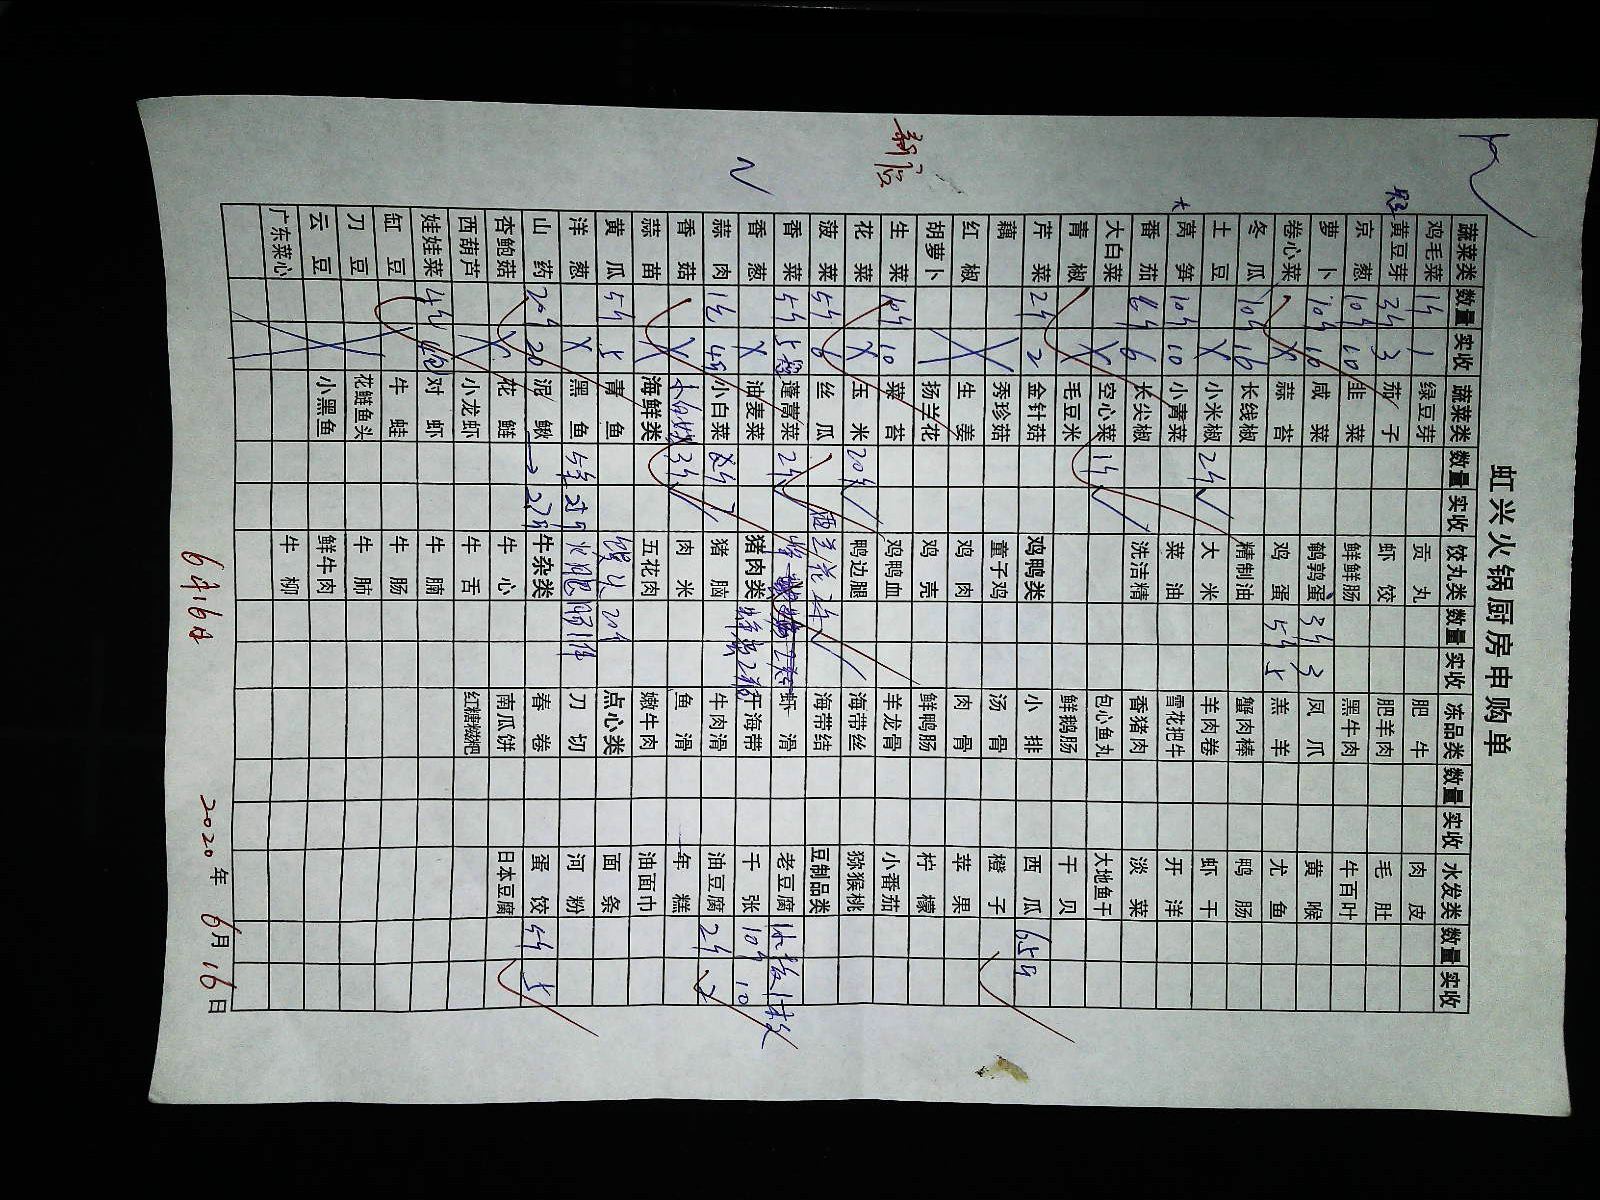 虹兴火锅厨房申购单
蔬菜类 数量 实收 蔬菜类 数量 实收 饺丸类 数量 实收 冻品类 数量 实收 水发类 数量 实收
鸡毛菜 1斤 1 绿豆芽 贡丸 肥牛 肉皮
黄豆芽 3斤 3 茄子 虾饺 肥羊肉 毛肚
京葱 10斤 10 韭菜 鲜鲜肠 黑牛肉 牛百叶
萝卜 10斤 10 咸菜 鹌鹑蛋 3斤 3 凤爪 黄喉
卷心菜 X 蒜苔 鸡蛋 5斤 5 羔羊 尤鱼
冬瓜 10斤 10 长线椒 精制油 蟹肉棒 鸭肠
土豆 X 小米椒 2斤 大米 羊肉卷 虾干
大 莴笋 10斤 10 小青菜 菜油 雪花把牛 开洋
番茄 6斤 6 长尖椒 洗洁精 香猪肉 淡菜
大白菜 X 空心菜 1斤 包心鱼丸 大地鱼干
青椒 毛豆米 鲜鹅肠 干贝
芹菜 2斤 2 金针菇 鸡鸭类 小排 西瓜 65斤
藕 秀珍菇 童子鸡 汤骨 橙子
红椒 生姜 鸡肉 肉骨 苹果
胡萝卜 扬兰花 鸡壳 鲜鸭肠 柠檬
生菜 10斤 10 菜苔 鸡鸭血 羊龙骨 小番茄
花菜 X 玉米 20斤 鸭边腿 海带丝 猕猴桃
菠菜 5斤 6 丝瓜 海带结 豆制品类
香菜 5斤 5 蓬蒿菜 2斤 虾滑 老豆腐
香葱 X 油麦菜 猪肉类 开海带 千张 10斤 10
蒜肉 小白菜 猪脑 牛肉滑 油豆腐 2斤 2
香菇 肉米 鱼滑 年糕
蒜苗 X 海鲜类 五花肉 嫩牛肉 油面巾
黄瓜 5斤 5 青鱼 点心类 面条
洋葱 X 黑鱼 火腿肠1件 刀切 河粉
山药 20斤 20 泥鳅 牛杂类 春卷 蛋饺 5斤 5
杏鲍菇 X 花鲢 牛心 南瓜饼 日本豆腐
西葫芦 X 小龙虾 牛舌 红糖糍粑
娃娃菜 对虾 牛腩
缸豆 牛蛙 牛肠
刀豆 花鲢鱼头 牛肺
云豆 小黑鱼 鲜牛肉
广东菜心 牛柳
6月16日
2020年6月16日